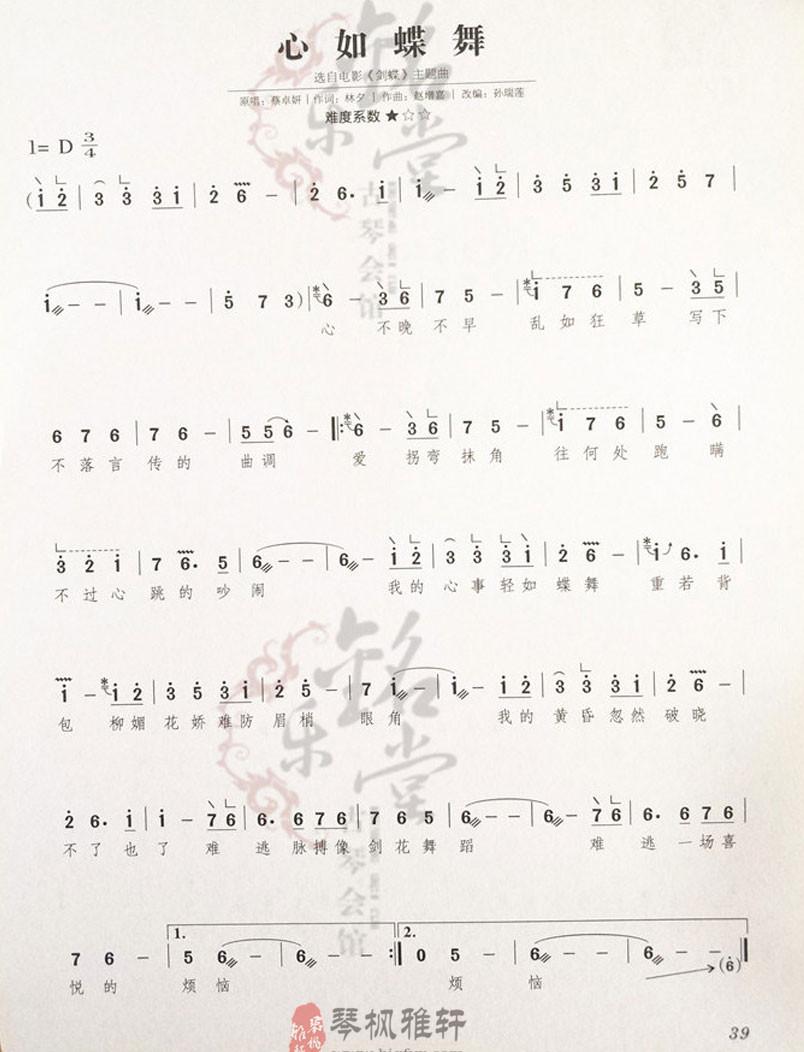 心如蝶舞
选自电影《剑蝶》主题曲
原唱：蔡卓妍 | 作词：林夕 | 作曲：赵增熹 | 改编：孙瑞莲
难度系数 ★☆☆
1= D 3/4
(i 2 | 3 3 3 i | 2 6 - | 2 6. i | i - i 2 | 3 5 3 i | 2 5 7 |
i - - | i - - | 5 7 3 ) | 6 - 3 6 | 7 5 - | i 7 6 | 5 - 3 5 |
心 不晚 不早 乱如狂 草 写下
6 7 6 | 7 6 - | 5 5 6 - ‖: 6 - 3 6 | 7 5 - | i 7 6 | 5 - 6 |
不落言 传的 曲调 爱 拐弯 抹角 往何处 跑 瞒
3 2 i | 7 6. 5 | 6 - - | 6 - i 2 | 3 3 3 i | 2 6 - | i 6. i |
不过心 跳的吵 闹 我的 心事轻如 蝶舞 重若背
i - i 2 | 3 5 3 i | 2 5 - | 7 i - | i - i 2 | 3 3 3 i | 2 7 6 |
包 柳媚 花娇难防 眉梢 眼角 我的 黄昏忽然 破晓
2 6. i | i - 7 6 | 6. 6 7 6 | 7 6 5 | 6 - - | 6 - 7 6 | 6. 6 7 6 |
不了也 了 难 逃 脉搏像 剑花舞 蹈 难 逃 一场喜
1. 2.
7 6 - | 5 6 - | 6 - - :‖ 0 5 - | 6 - | 6 - - ‖ (6)
悦的 烦恼 烦 恼
铭
乐
堂
古琴会馆
铭
乐
堂
古琴会馆
琴枫雅轩
39